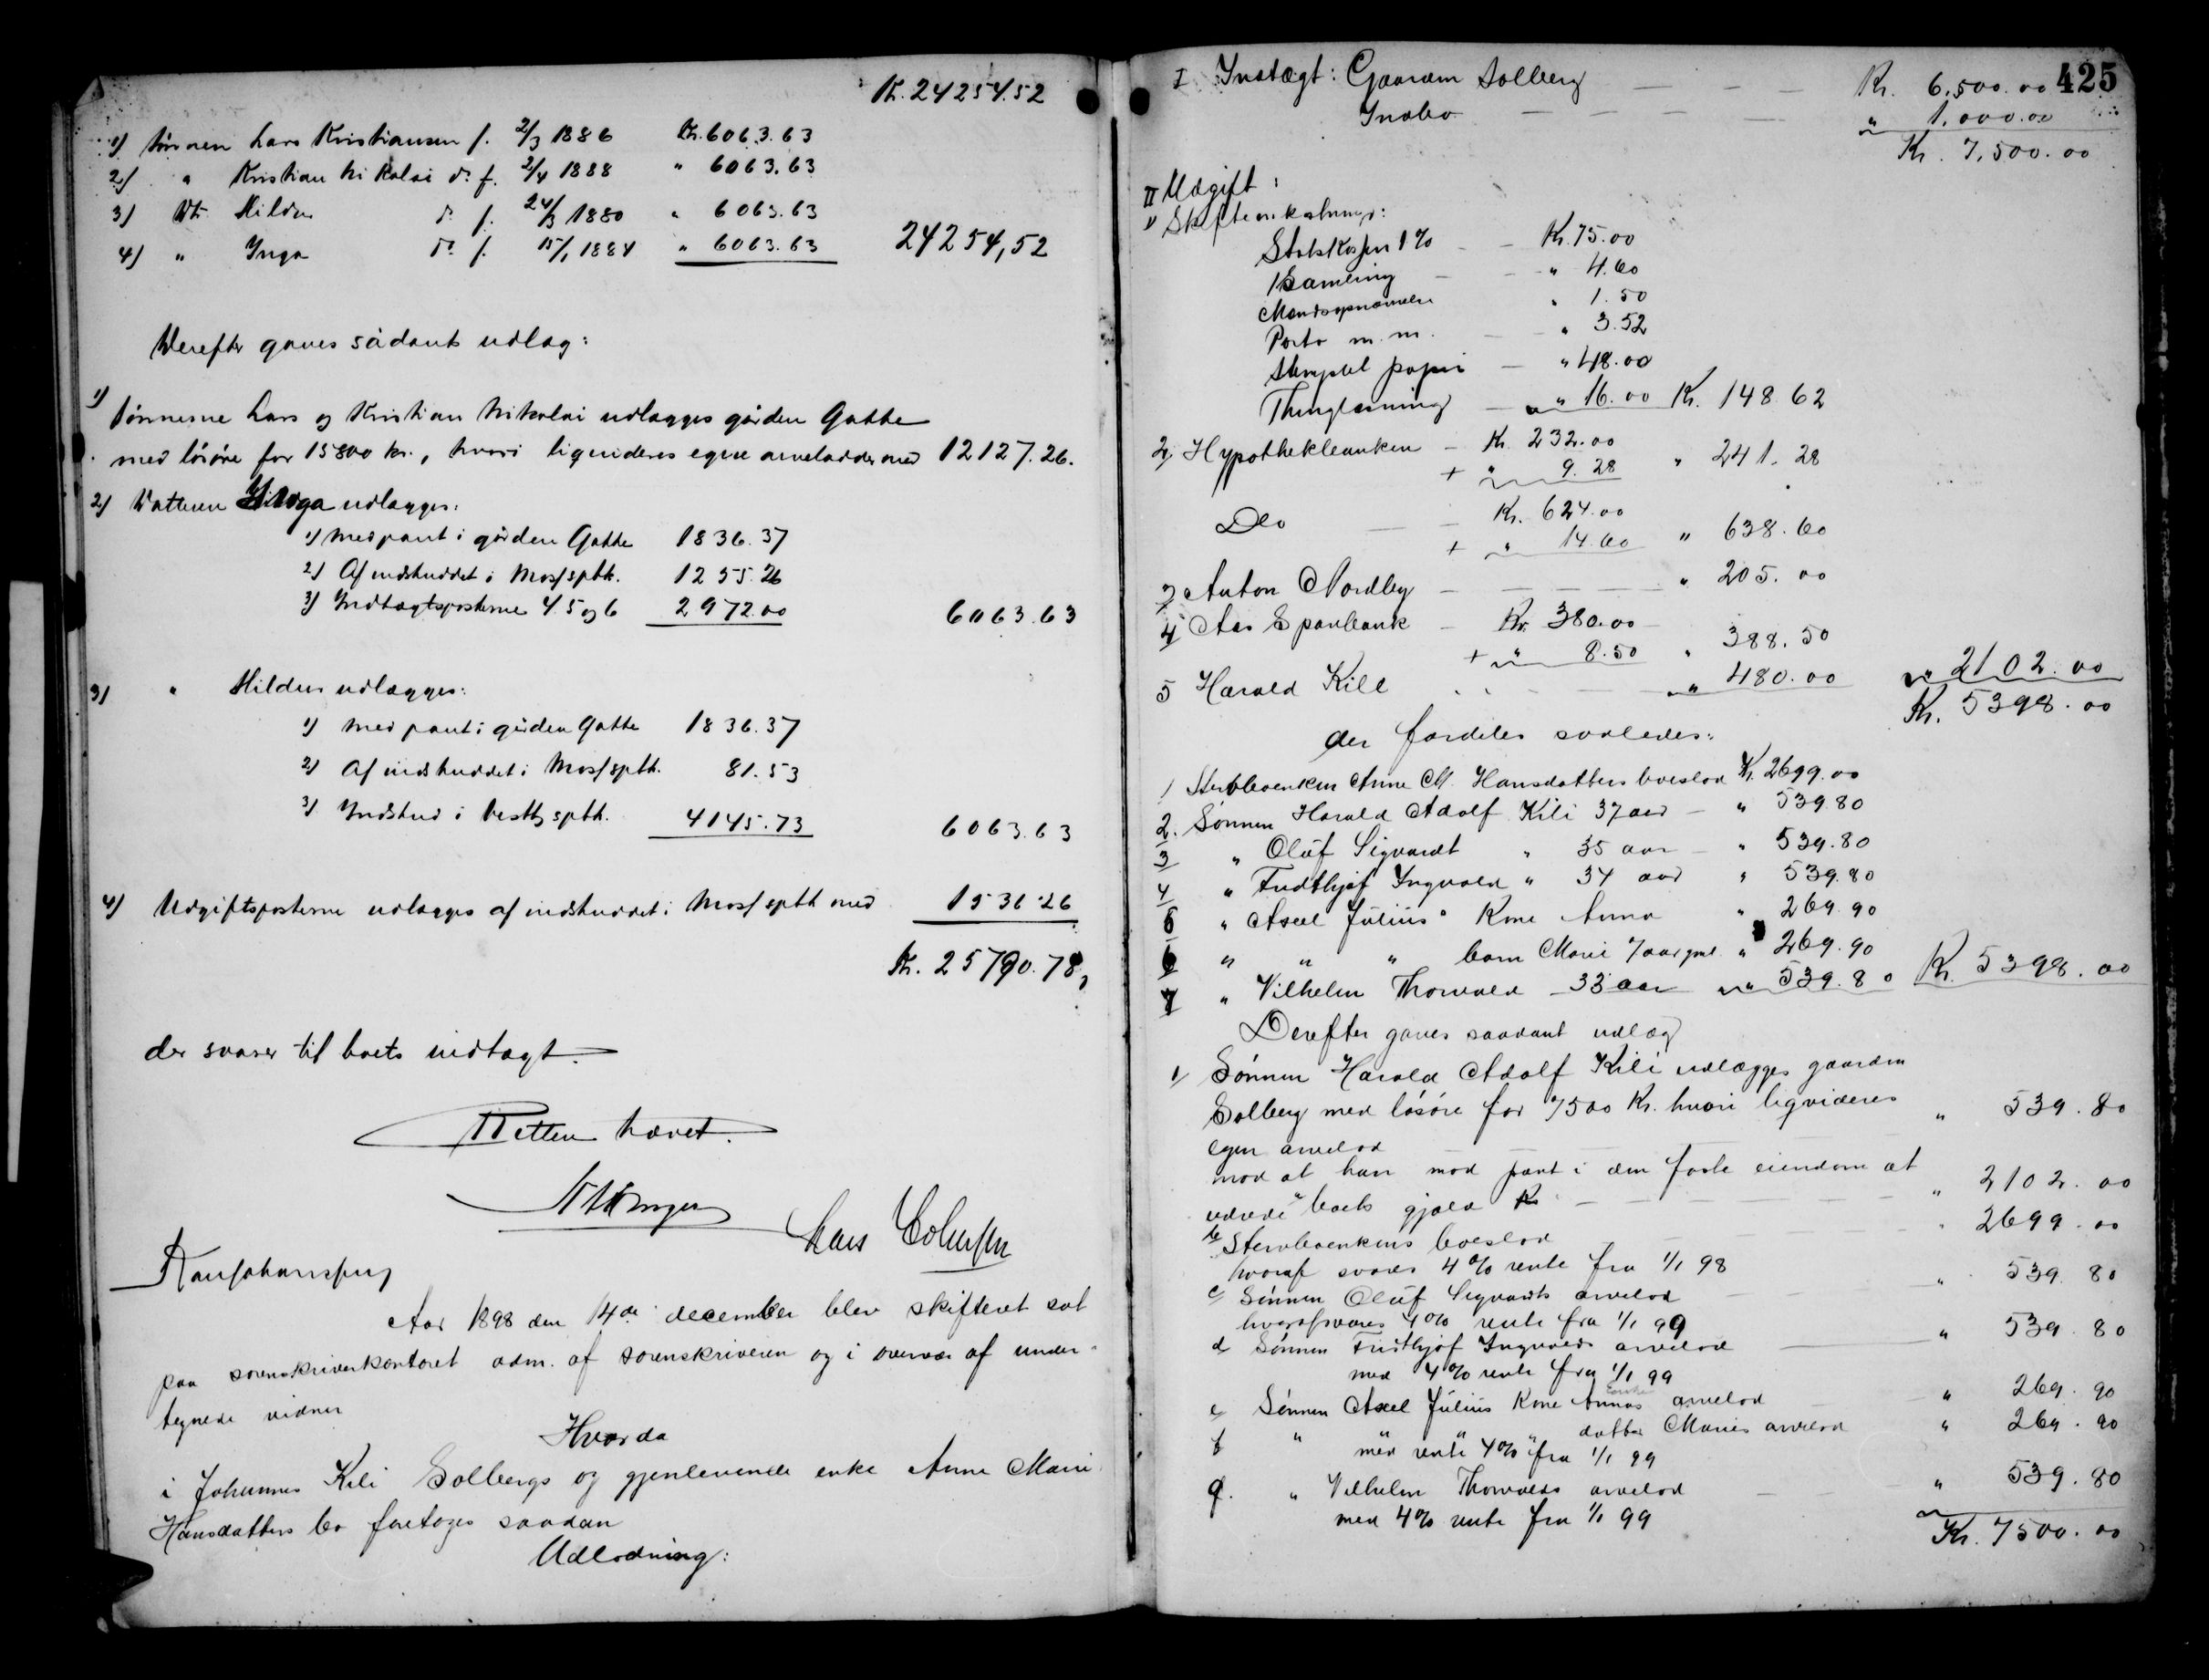 Kr. 24254.52
1) Sønnen Lars Kristiansen f. 2/3 1886 Kr. 6063.63
2) " Kristian Nikolai do f. 2/4 1888 " 6063.63
3) Dtr. Hilda do f. 24/3 1880 " 6063.63
4) " Inga do f. 15/1 1884 " 6063.63 24254,52
Derefter gaves sådant udlæg:
1) Sønnerne Lars og Kristian Nikolai udlægges gården Gatke
med løsøre for 15800 kr., hvori liqvideres egne arvelodder med 12127.26.
2) Datteren Inga udlægges:
1) med pant i gården Gatke 1836.37
2) Af indskuddet i Moss spbk. 1255.26
3) Indtægtsposterne 4.5 og 6 2972.00 6063.63
3) " Hilda udlægges:
1) med pant i gården Gatke 1836.37
2) Af indskuddet i Moss spbk. 81.53
3) Indskud i Vestby spbk. 4145.73 6063.63
4) Udgiftsposterne udlægges af indskuddet i Moss spbk med 1536.26
Kr. 25790.78,
der svarer til boets indtægt.
Retten hævet.
Lars
Aar 1898 den 14de december blev skifteret sat
paa sorenskriverkontoret adm. af sorenskriveren og i overvær af under-
tegnede vidner
Hvorda
i Johannes Kili Solbergs og gjenlevende enke Anne Marie
Hansdatters bo foretoges saadan
Udlodning:
425
I Indtægt: Gaarden Solberg Kr. 6,500.00
Indbo " 1.000.00
Kr. 7,500.00
II Udgift:
1) Skifteomkostninger:
Statskassen 1% Kr. 75.00
1 Samling " 4.60
Mandsopnævnelse " 1.50
Porto m.m. " 3.52
Stempel papir " 48.00
Thinglæsning " 16.00 Kr. 148.62
2, Hypothekbanken Kr. 232.00
+ " 9.28 " 241.28
Do Kr. 624.00
+ " 14.60 " 638.60
3, Anton Nordby " 205.00
4 Aas Sparebank Kr. 380.00
+ " 8.50 " 388.50
5 Harald Kili " 480.00 " 2102.00
Kr. 5398.00
der fordeles saaledes:
1 Stervboenken Anne M. Hansdatters boeslod Kr. 2699.00
2. Sønnen Harald Adolf Kili 37 aar " 539.80
3 " Oluf Sigvardt " 35 aar " 539.80
4 " Fridthjof Ingvald " 34 aar " 539.80
5 " Axel Julius' Kone Anna " 269.90
6 " " " barn Marie 7 aar gml. " 269.90
7 " Vilhelm Thorvald 33 aar " 539.80 Kr. 5398.00
Derefter gaves saadant udlæg
1, Sønnen Harald Adolf Kili udlægges gaarden
Solberg med løsøre for 7500 Kr. hvori liqvideres
egen arvelod " 539.80
mod at han mod pant i den faste eiendom at
udrede boets gjæld " 2102.00
b, Stervboenkens boeslod " 2699.00
hvoraf svares 4% rente fra 1/1 98
c, Sønnen Oluf Sigvardts arvelod " 539.80
hvoraf svares 4% rente fra 1/1 99
d, Sønnen Fridthjof Ingvalds arvelod " 539.80
med 4% rente fra 1/1 99
e, Sønnen Axel Julius Kone Annas arvelod " 269.90
f " " " datter Maries arvelod " 269.90
med rente 4% fra 1/1 99
g. " Vilhelm Thorvalds arvelod " 539.80
med 4% rente fra 1/1 99
Kr. 7500.00